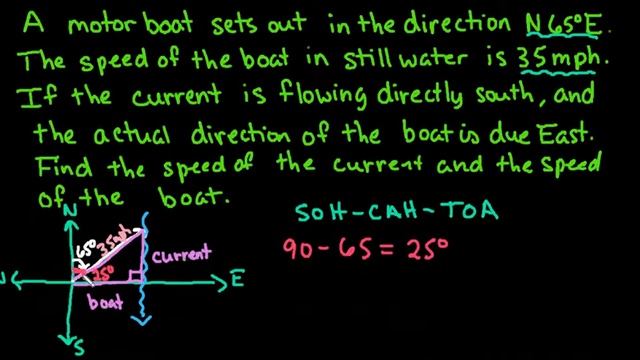 A motor boat sets out in the direction N65°E.
The speed of the boat in still water is 35mph.
If the current is flowing directly south, and
the actual direction of the boat is due East.
Find the speed of the current and the speed
of the boat.
SOH-CAH-TOA
90-65=25°
N
65°
35mph
current
25°
E
boat
S